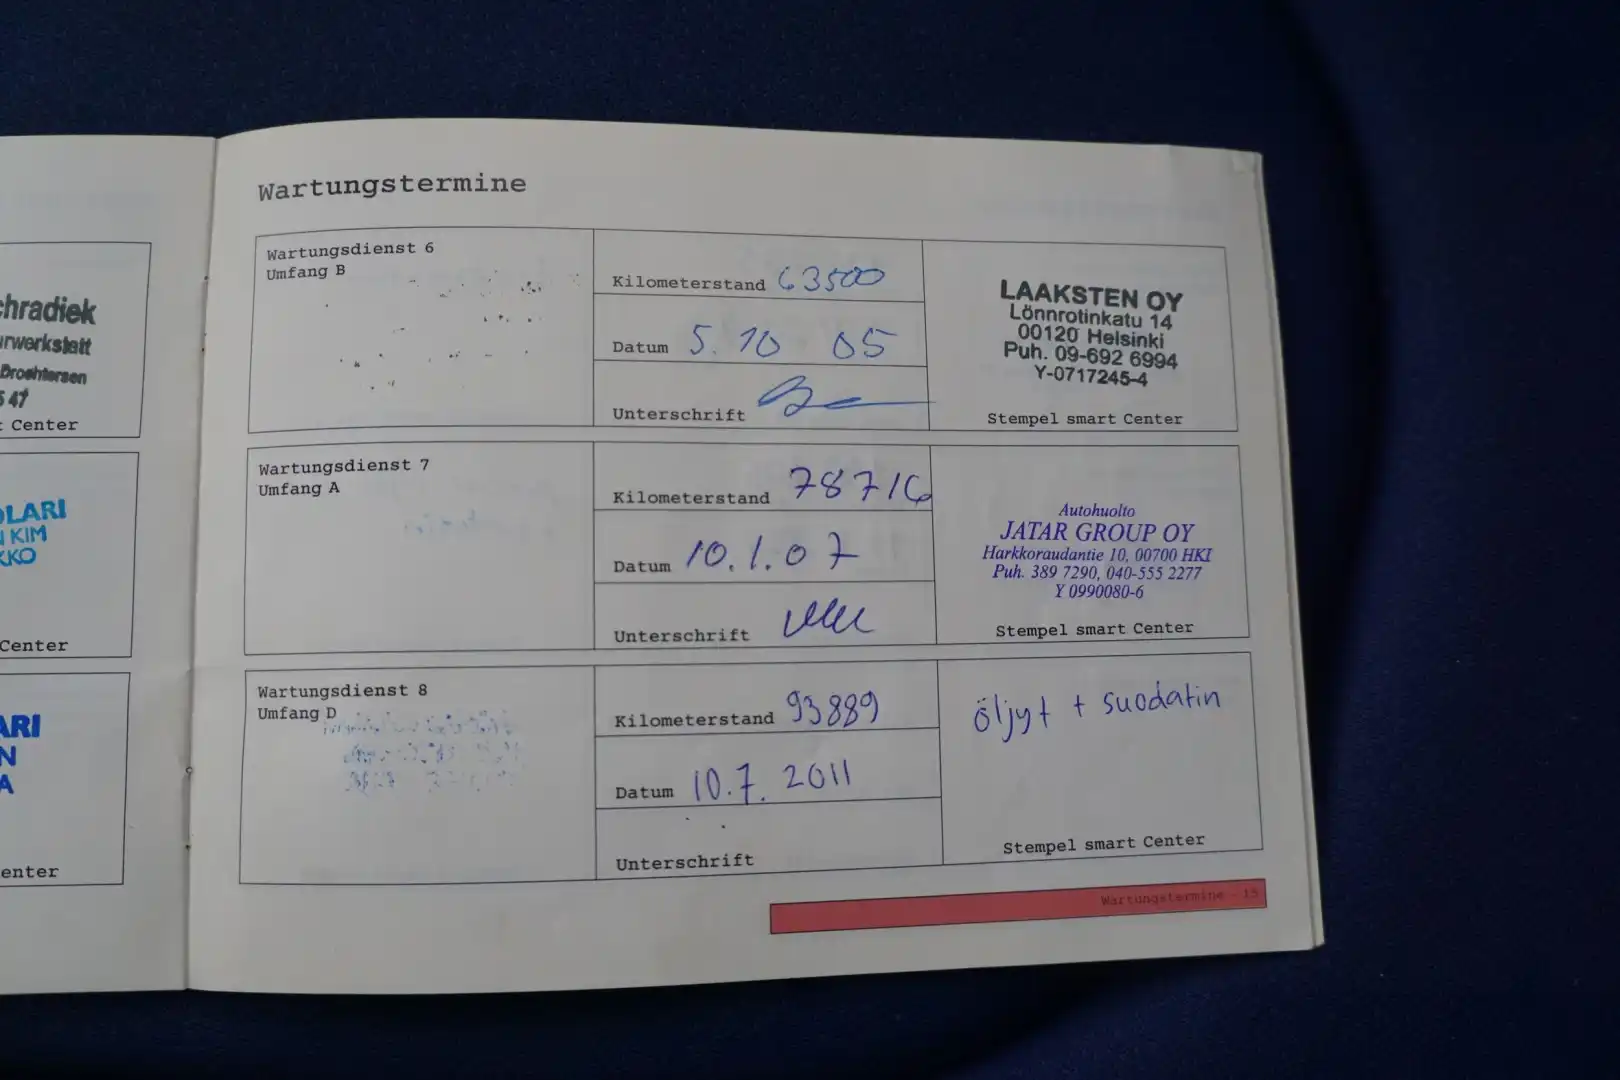 chradiek
urwerkstatt
Drochtersen
547
Center
OLARI
KIM
KKO
Center
ARI
N
A
enter
Wartungstermine
Wartungsdienst 6
Umfang B
Kilometerstand 63500
Datum 5. 10 05
Unterschrift
LAAKSTEN OY
Lönnrotinkatu 14
00120 Helsinki
Puh. 09-692 6994
Y-0717245-4
Stempel smart Center
Wartungsdienst 7
Umfang A
Kilometerstand 78716
Datum 10.1.07
Unterschrift
Autohuolto
JATAR GROUP OY
Harkkoraudantie 10, 00700 HKI
Puh. 389 7290, 040-555 2277
Y 0990080-6
Stempel smart Center
Wartungsdienst 8
Umfang D
Kilometerstand 93889
Datum 10.7. 2011
Unterschrift
öljyt + suodatin
Stempel smart Center
Wartungstermine 15